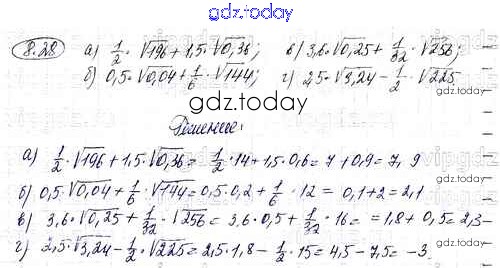 gdz.today
8.28 а) 1/2 · √196 + 1,5 · √0,36; в) 3,6 · √0,25 + 1/32 · √256;
б) 0,5 · √0,04 + 1/6 · √144; г) 2,5 · √3,24 − 1/2 · √225
gdz.today
Решение:
а) 1/2 · √196 + 1,5 · √0,36 = 1/2 · 14 + 1,5 · 0,6 = 7 + 0,9 = 7,9
б) 0,5 · √0,04 + 1/6 · √144 = 0,5 · 0,2 + 1/6 · 12 = 0,1 + 2 = 2,1
в) 3,6 · √0,25 + 1/32 · √256 = 3,6 · 0,5 + 1/32 · 16 = = 1,8 + 0,5 = 2,3
г) 2,5 · √3,24 − 1/2 · √225 = 2,5 · 1,8 − 1/2 · 15 = 4,5 − 7,5 = −3
gdz.today